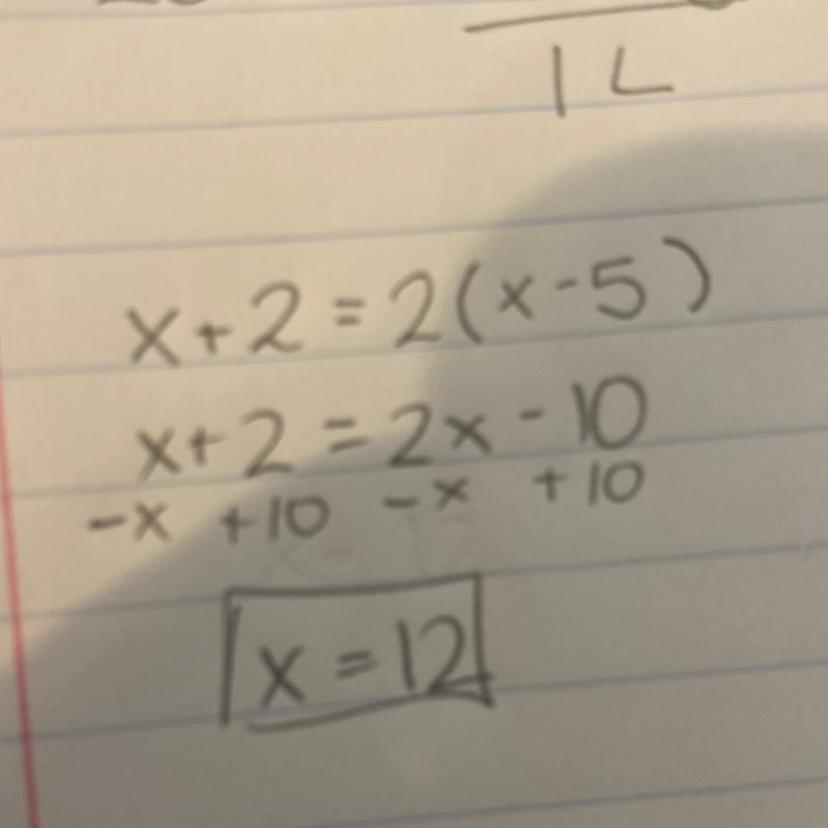 1L
x+2=2(x-5)
x+2=2x-10
-x +10 -x +10
x=12